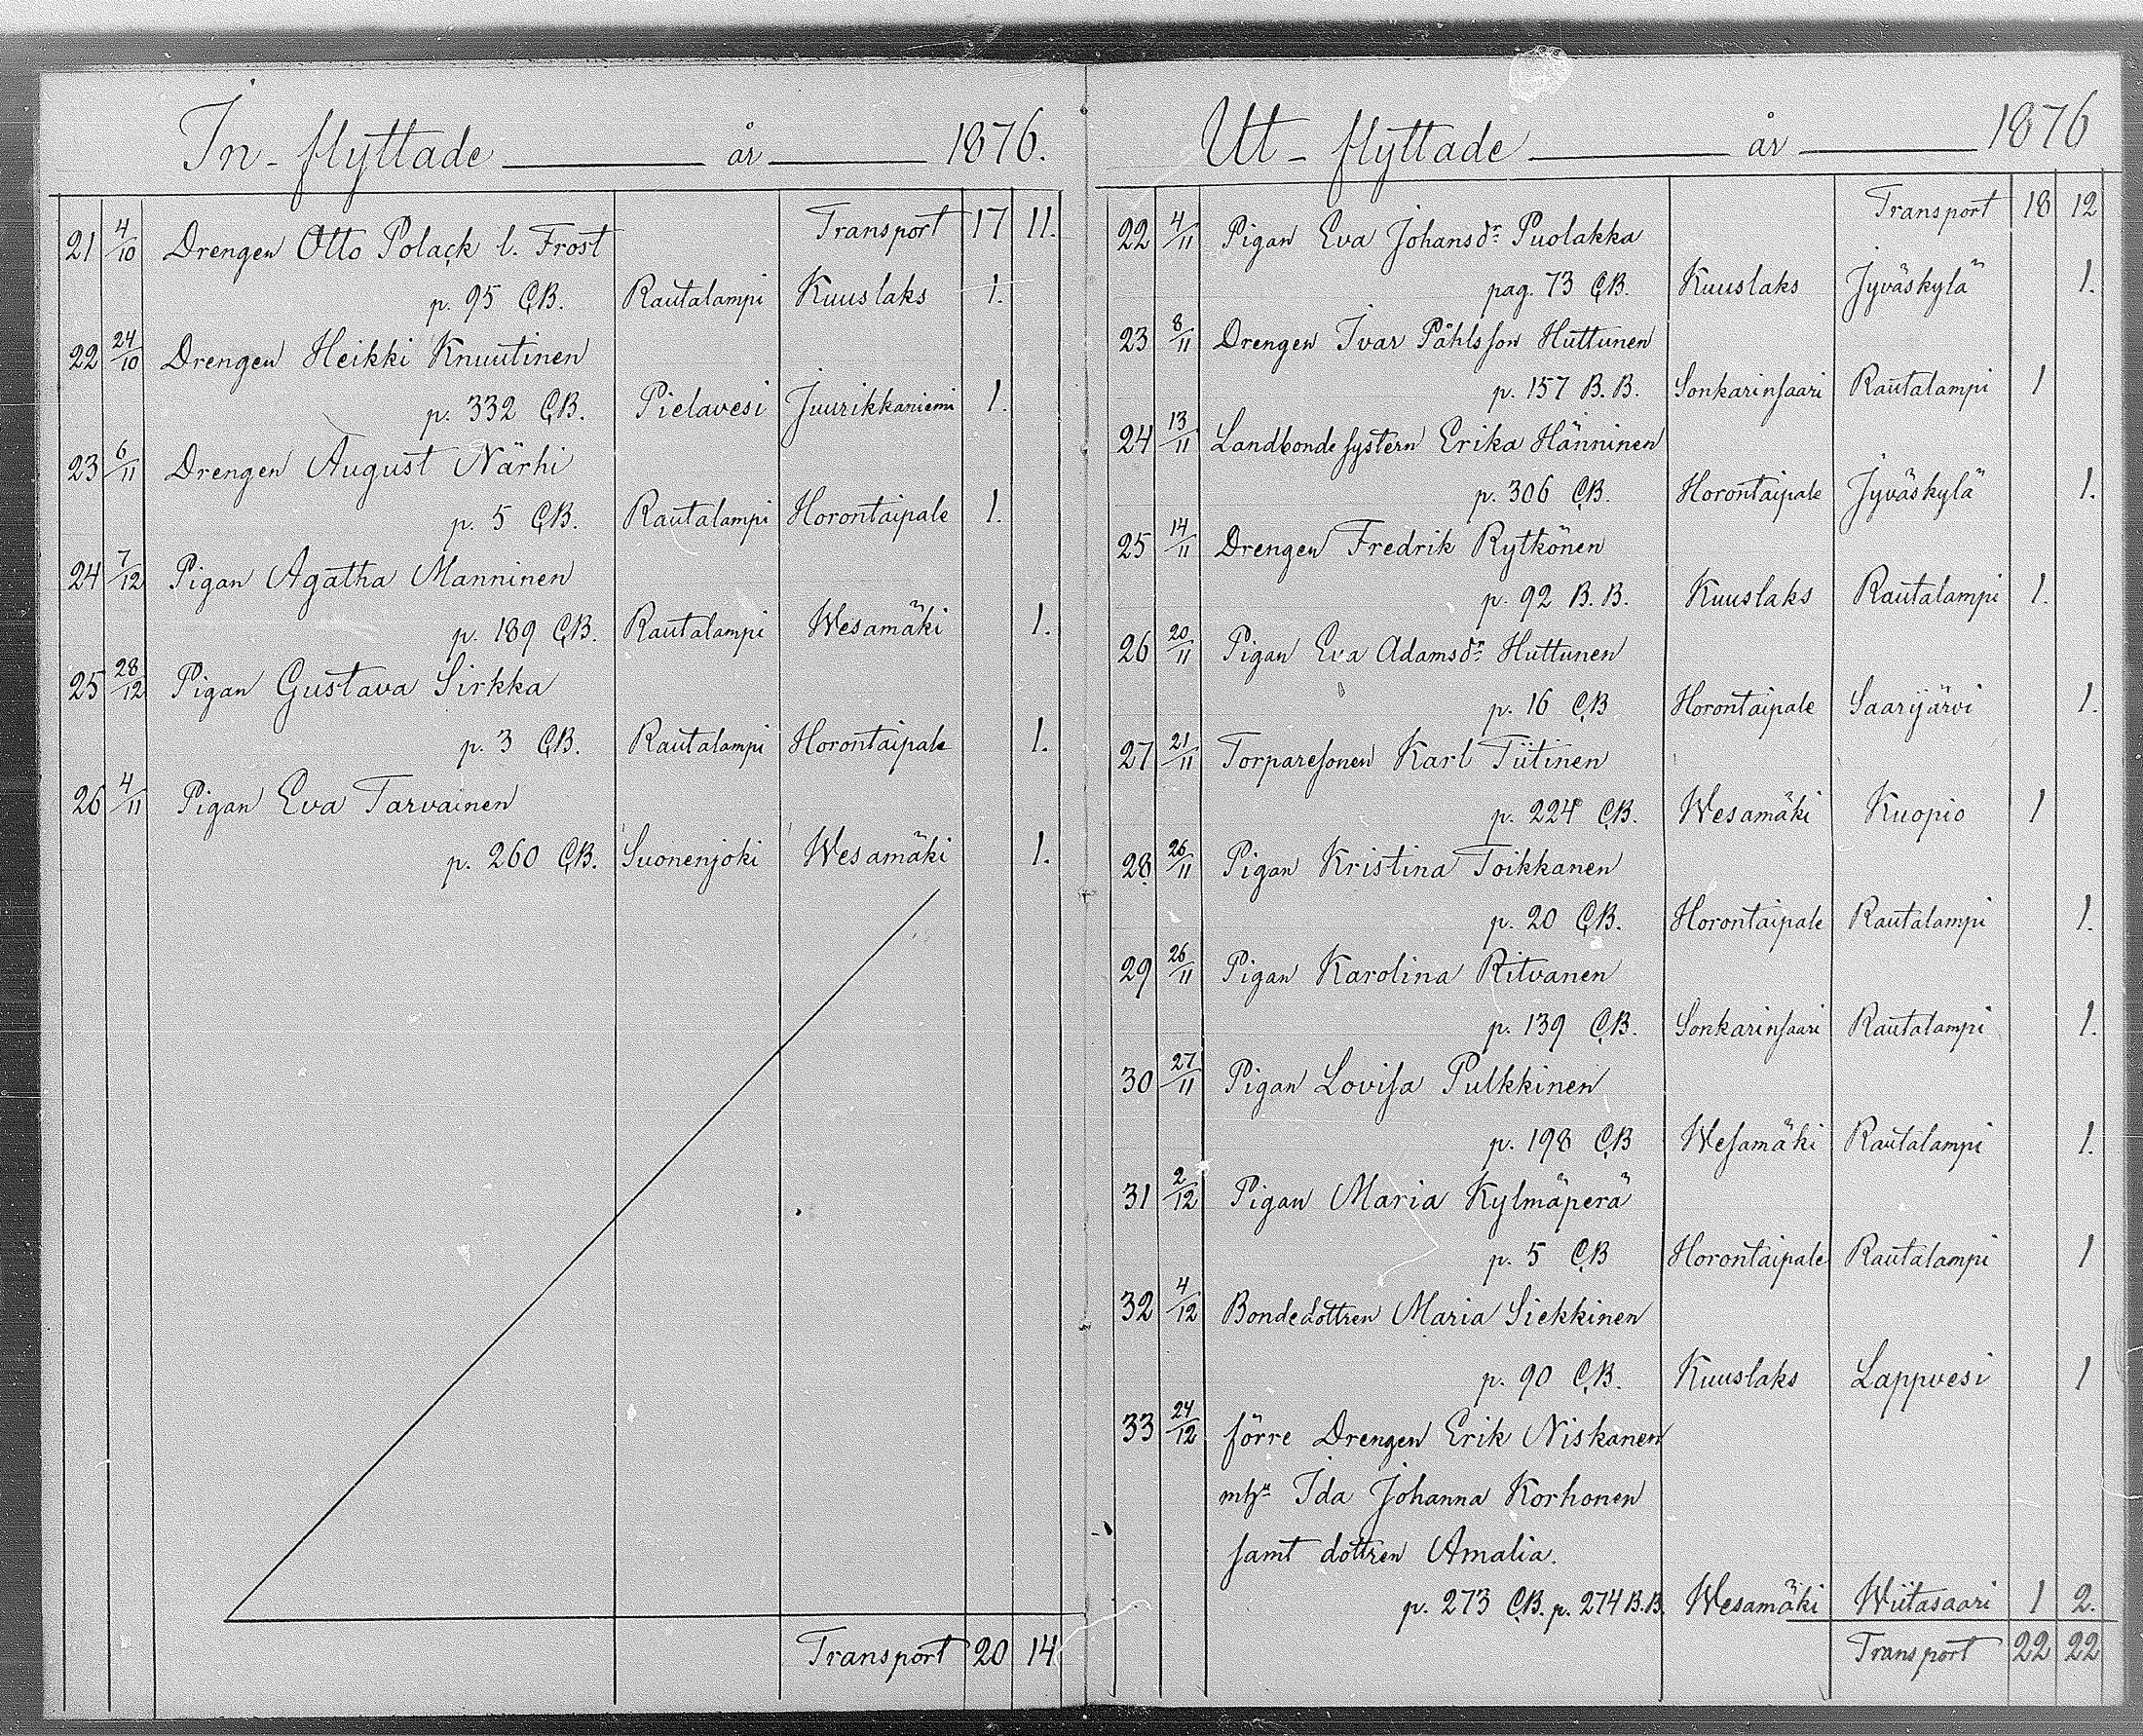 In-flyttade år 1876.
Transport 17 11.
21 4/10 Drengen Otto Polack l. Frost
p. 95 C.B. Rautalampi Kuuslaks 1.
22 24/10 Drengen Heikki Knuutinen
p. 332 C.B. Pielavesi Juurikkaniemi 1.
23 6/11 Drengen August Närhi
p. 5 C.B. Rautalampi Horontaipale 1.
24 7/12 Pigan Agatha Manninen
p. 189 C.B. Rautalampi Wesamäki 1.
25 28/12 Pigan Gustava Sirkka
p. 3 C.B. Rautalampi Horontaipale 1.
26 4/11 Pigan Eva Tarvainen
p. 260 C.B. Suonenjoki Wesamäki 1.
Transport 20 14
Ut-flyttade år 1876
Transport 18 12
22 4/11 Pigan Eva Johansdr Puolakka
pag. 73 C.B. Kuuslaks Jyväskylä 1.
23 8/11 Drengen Ivar Påhlsson Huttunen
p. 157 B.B. Sonkarinsaari Rautalampi 1
24 13/11 Landbondesystern Erika Hänninen
p. 306 C.B. Horontaipale Jyväskylä 1.
25 14/11 Drengen Fredrik Rytkönen
p. 92 B.B. Kuuslaks Rautalampi 1.
26 20/11 Pigan Eva Adamsdr Huttunen
p. 16 C.B Horontaipale Saarijärvi 1.
27 21/11 Torparesonen Karl Tiitinen
p. 224 C.B. Wesamäki Kuopio 1
28 26/11 Pigan Kristina Toikkanen
p. 20 C.B. Horontaipale Rautalampi 1.
29 26/11 Pigan Karolina Ritvanen
p. 139 C.B. Sonkarinsaari Rautalampi 1.
30 27/11 Pigan Lovisa Pulkkinen
p. 198 C.B Wesamäki Rautalampi 1.
31 2/12 Pigan Maria Kylmäperä
p. 5 C.B Horontaipale Rautalampi 1
32 4/12 Bondedottren Maria Siekkinen
p. 90 C.B. Kuuslaks Lappvesi 1
33 24/12 förre Drengen Erik Niskanen
mh Ida Johanna Korhonen
samt dottren Amalia.
p. 273 C.B. p. 274 B.B. Wesamäki Wiitasaari 1 2.
Transport 22 22